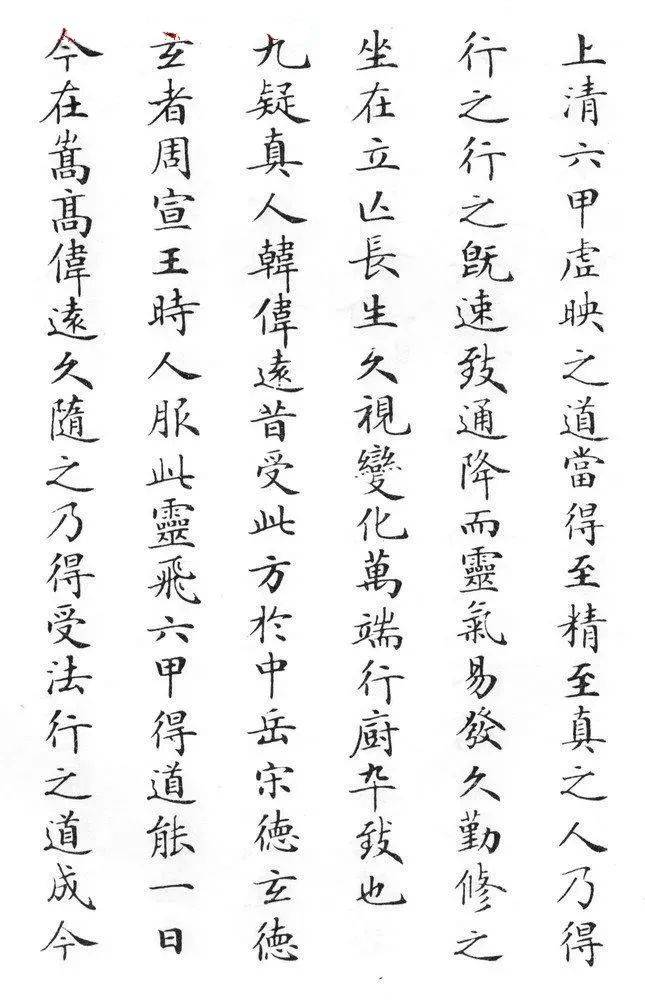 上清六甲虚映之道當得至精至真之人乃得
行之行之既速致通降而靈氣易發久勤修之
坐在立亾長生久視變化萬端行廚卒致也
九疑真人韓偉遠昔受此方於中岳宋徳玄徳
玄者周宣王時人服此靈飛六甲得道能一日
今在嵩髙偉遠久隨之乃得受法行之道成今